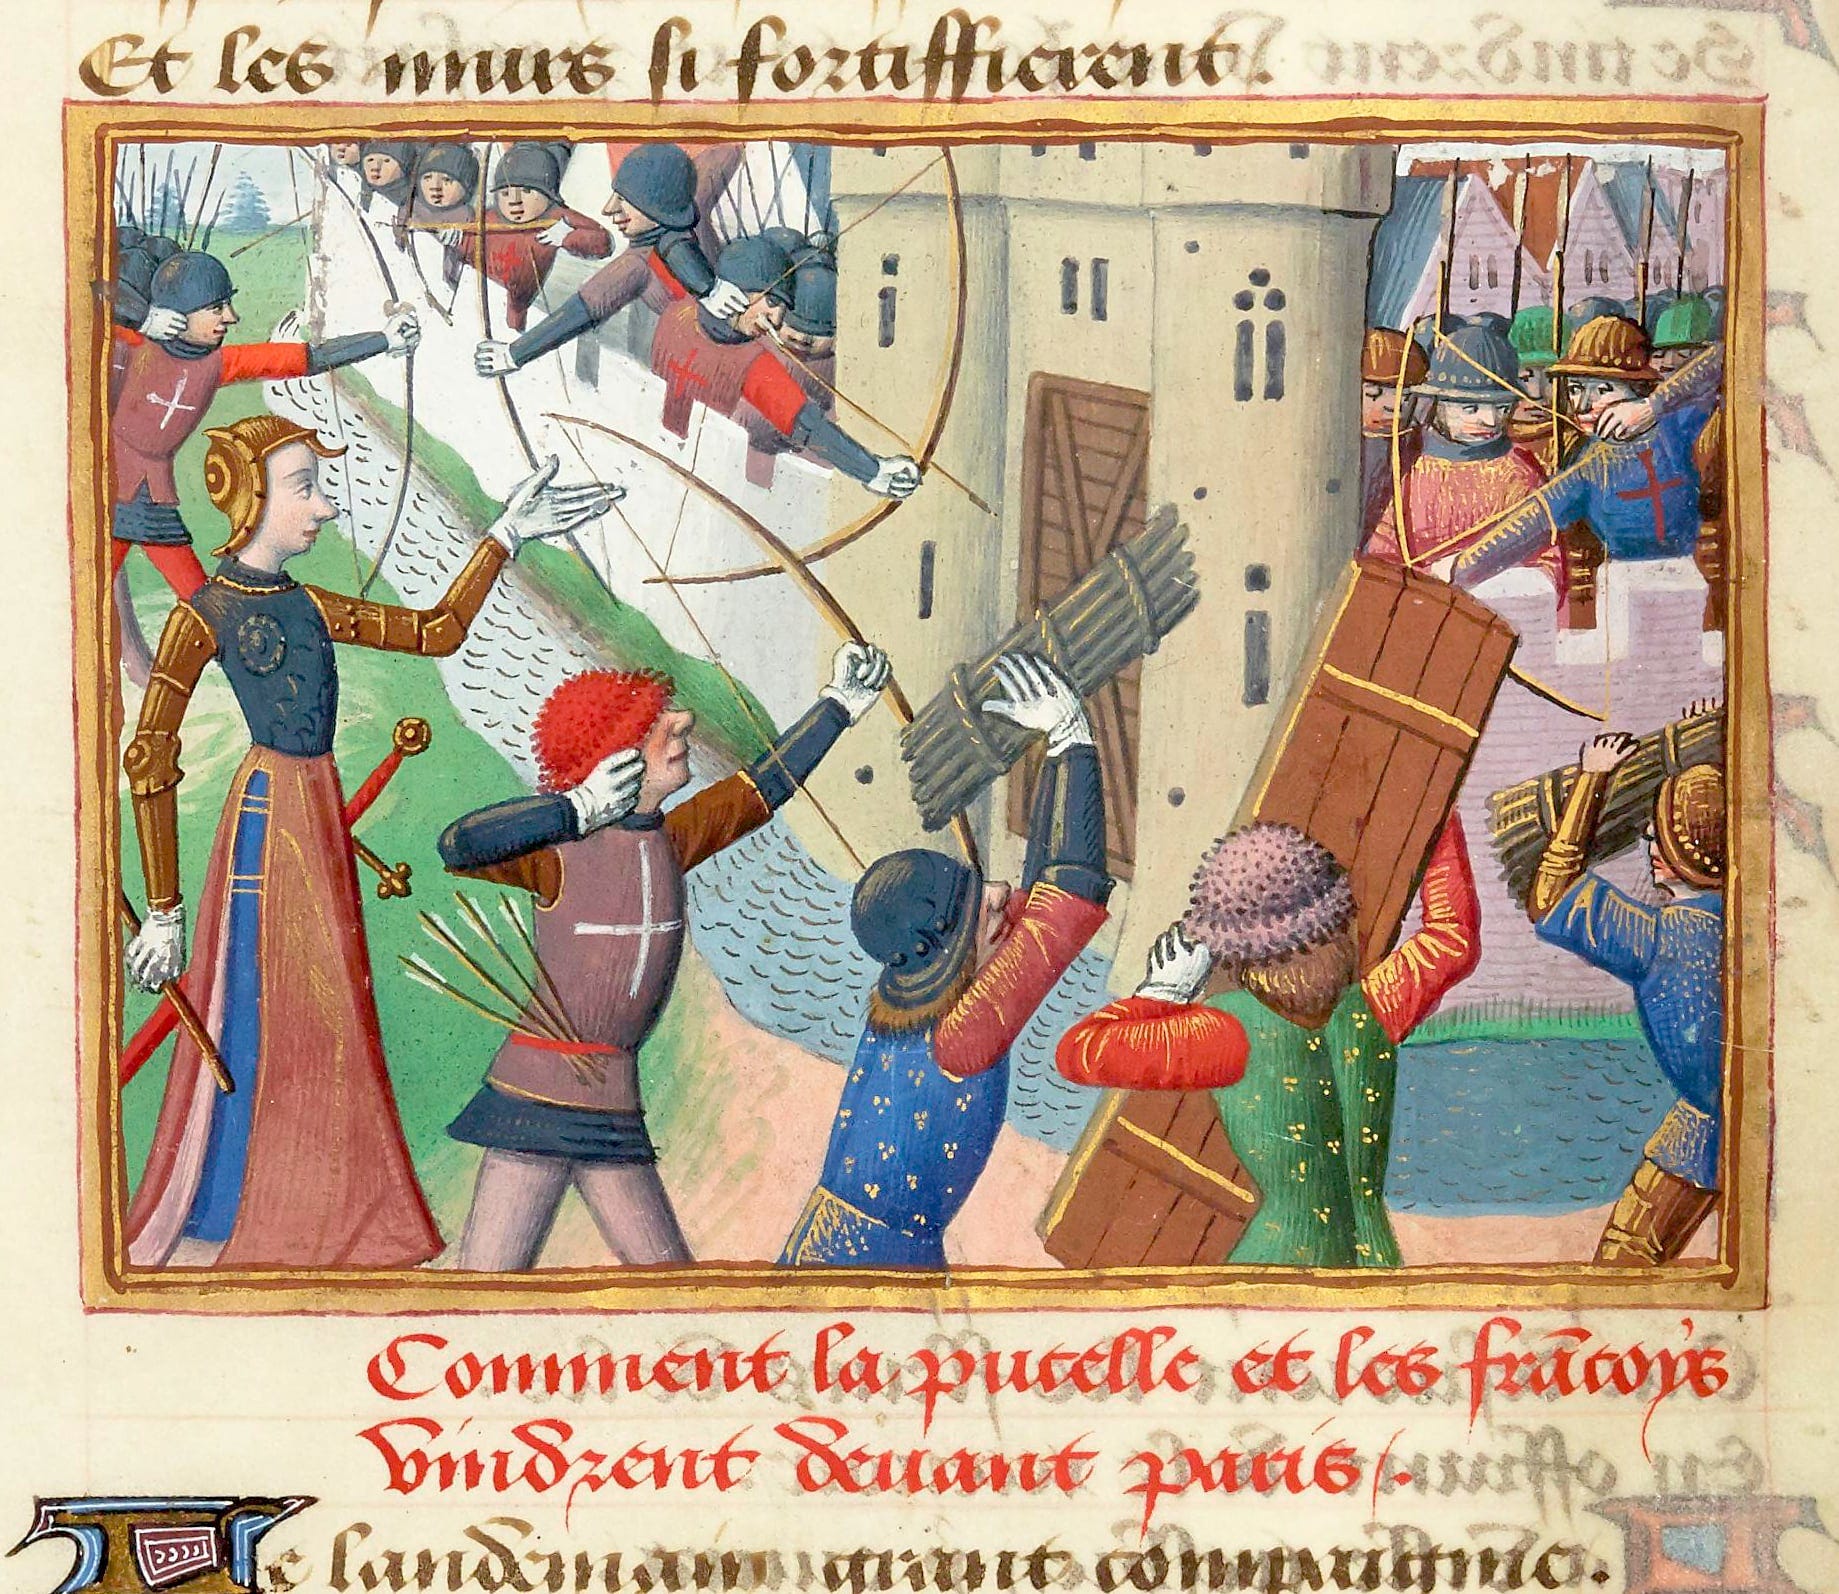 Et les murs si fortiffierent.
Comment la pucelle et les frãcoys
vindrent deuant paris /.
Le landemain grant compaignie.